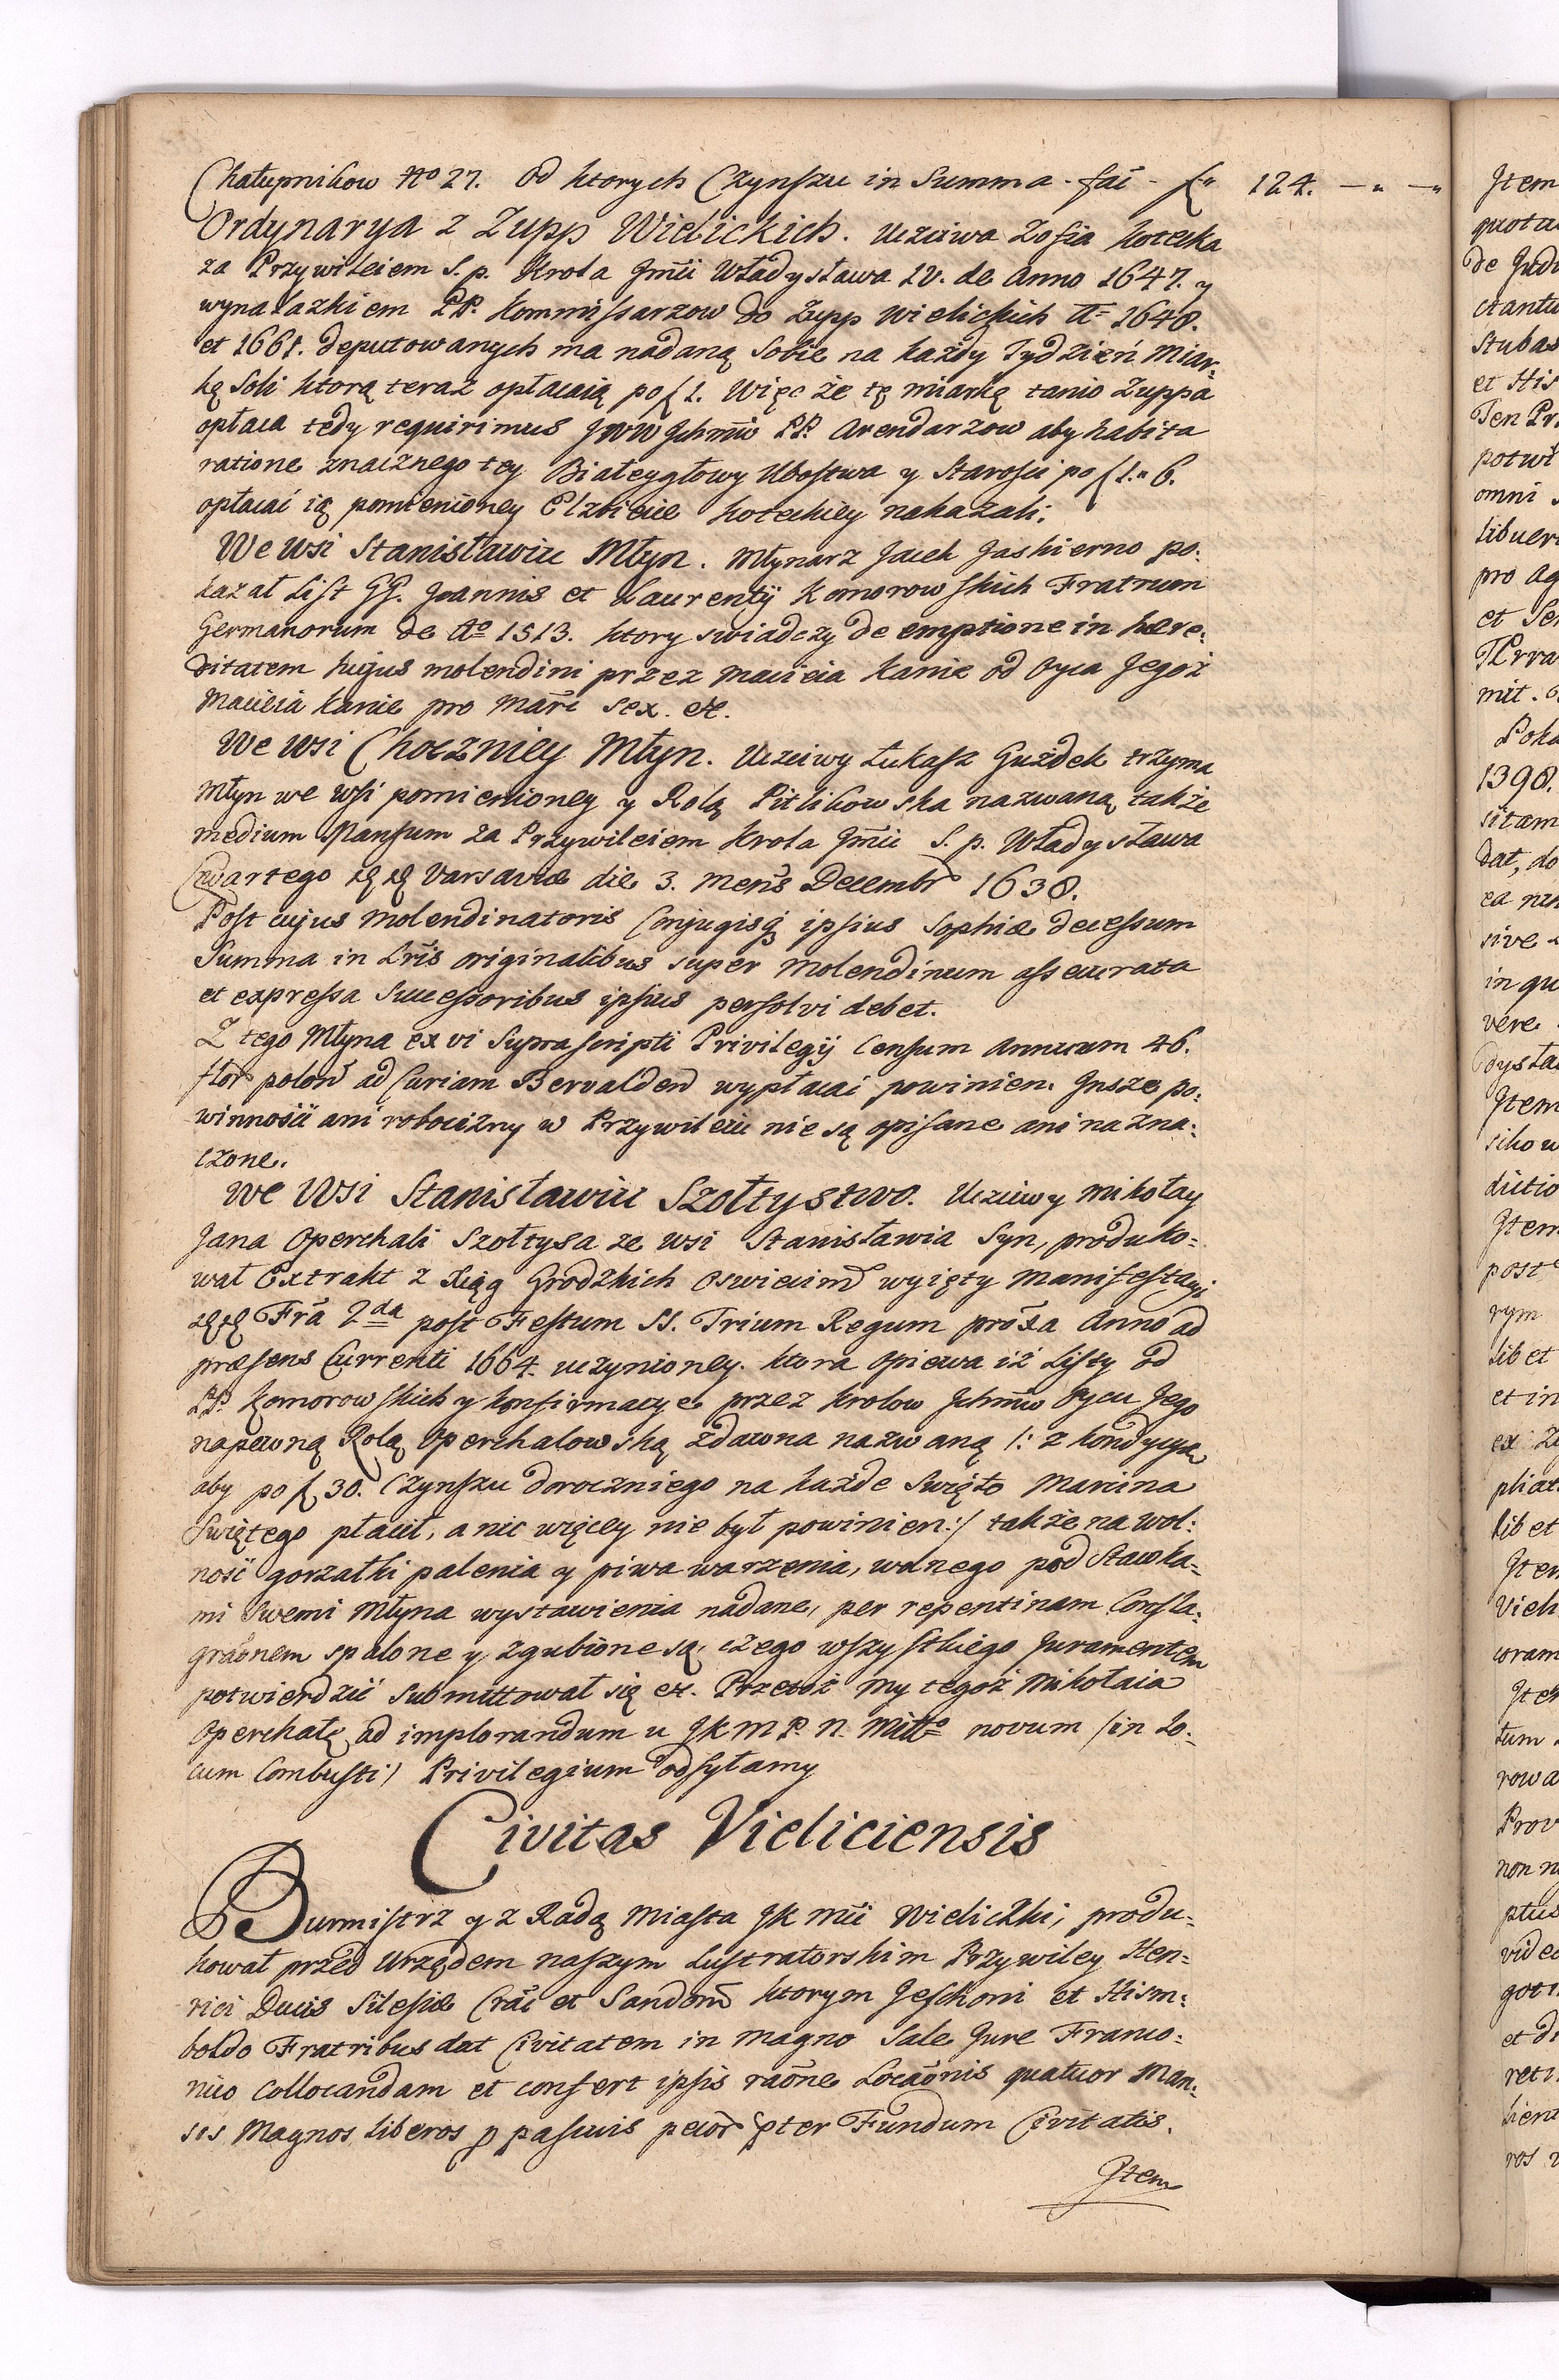 Chałupnikow No 27. Od ktorych Czynszu in Summa - fai - f" 124. -" -"
Ordynarya z Zupp Wielickich. Uczciwa Zofia Kotecka
za Przywileiem S. p. Krola Jmci Władysława IV. de Anno 1647. y
wynalazkiem PP. Kommissarzow do Zupp Wielickich A= 1648.
et 1661. deputowanych ma nadaną Sobie na każdy Tydzień Miar:
kę Soli ktorą teraz opłacaią po f 1. Więc że tę miarkę tanio Zuppa
opłaca tedy requirimus JWW Jchmciow PP. Arendarzow aby habita
ratione znacznego tey Białeygłowy Ubostwa y Starości po f 1." 6.
opłacać ią pomienioney Elzbiecie Koteckiey nakazali.
We Wsi Stanisławiu Młyn. Młynarz Jacek Jaskierno po:
kazał List GG. Joannis et Laurentij Komorowskich Fratrum
Germanorum de Ao 1513. ktory swiadczy de emptione in hære:
ditatem hujus molendini przez Macieia Kanie od Oyca Jegoż
Macieia Kanie pro Marc sex. etc.
We Wsi Choczniey Młyn. Uczciwy Łukasz Guźdek trzyma
Młyn we Wsi pomienioney y Rolą Pitlikowska nazwaną także
medium Mansum za Przywileiem Krola Jmci S. p. Władysława
Czwartego Varsaviæ die 3. Mens Decembr 1638.
Post cujus Molendinatoris Conjugisq ipsius Sophiæ decessum
Summa in Lris originalibus super Molendinum assecurata
et expressa Successoribus ipsius persolvi debet.
Z tego Młyna ex vi Suprascripti Privilegij Censum Annuum 46.
flor polon ad Curiam Bervalden wypłacać powinien. Jnsze po:
winności ani robocizny w Przywileiu nie są opisane ani nazna:
czone.
We Wsi Stanisławiu Szołtystwo. Uczciwy Mikołay
Jana Operchali Szołtysa ze Wsi Stanisławia Syn, produko=
wał Extrakt z Xiąg Grodzkich Oswiecim wyięty Manifestacyi
Fra 2da post Festum SS. Trium Regum proxa Anno ad
præsens Currenti 1664. uczynioney. ktora opiewa iż Listy od
PP. Komorowskich y konfirmacye przez Krolow Jchmciow Oycu Jego
na pewną Rolą Operchalowską zdawna nazwaną /: z kondycyą
aby po f 30. Czynszu doroczniego na każde Swięto Marcina
Swiętego płacił, a nic więcey nie był powinien:/ także na wol:
ność gorzałki palenia y piwa warzenia, wolnego pod Stawka=
mi Swemi Młyna wystawienia nadane, per repentinam Confla:
graonem spalone y zgubione są; czego wszystkiego Juramentem
potwierdzić Submittował się etc. Przetoż My tegoż Mikołaia
Operchalę ad implorandum u JKM P. N. Mitto novum (in Lo:
cum Combusti) Privilegium odsyłamy
Civitas Vieliciensis
Burmistrz y z Radą Miasta JK Mci Wieliczki, produ=
kował przed Urzędem naszym Lustratorskim Przywiley Hen=
rici Ducis Silesiæ Crac et Sandom ktorym Jeschoni et Hism:
boldo Fratribus dat Civitatem in Magno Sale Jure Franco:
nico Collocandam et confert ipsis raone Locaonis quatuor Man:
sos Magnos liberos p pascuis pecor pter Fundum Civitatis.
Jtem